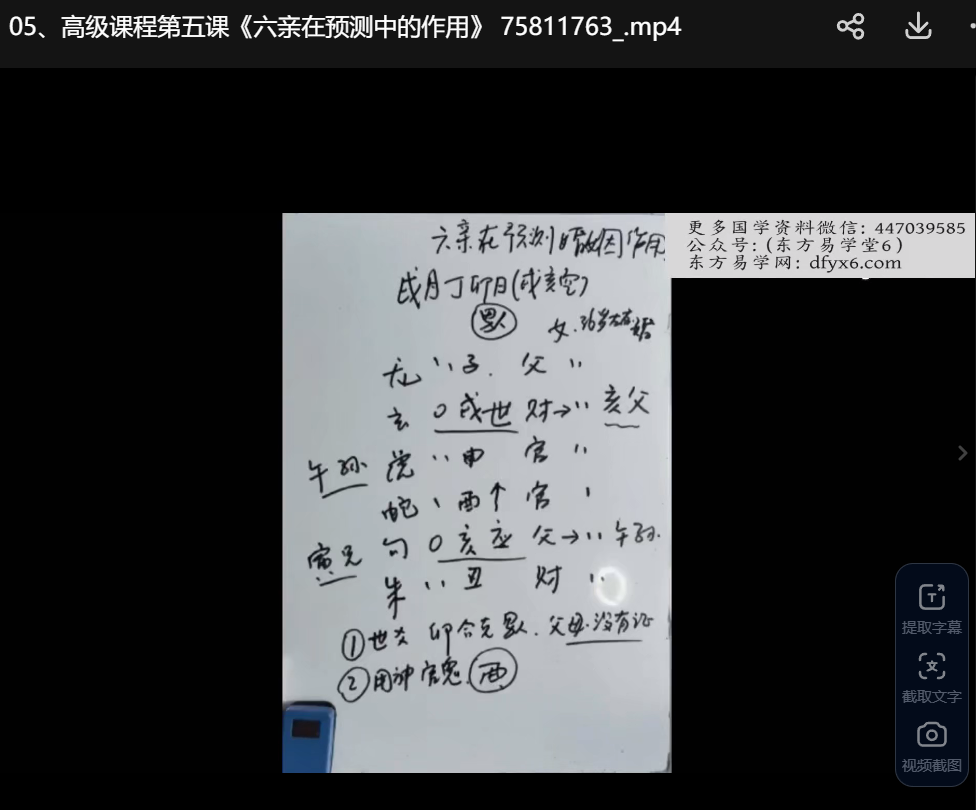 05、高级课程第五课《六亲在预测中的作用》 75811763_.mp4
更多国学资料微信: 447039585
公众号:(东方易学堂6)
东方易学网: dfyx6.com
六亲在预测婚姻作用
戌月丁卯日(戌亥空)
女.36岁
龙 〃子. 父 〃
玄 O戌世 财→〃 亥父
午孙 虎 〃申 官 〃
蛇 、酉个 官 、
寅兄 勾 O亥应 父→〃 午孙.
朱 〃丑 财 〃
①世爻 卯合克 父母.没有证
②用神官鬼 酉
提取字幕
截取文字
视频截图